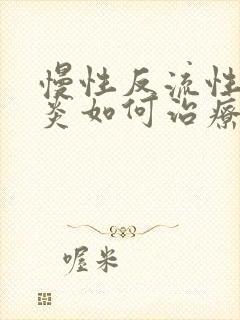 慢性反流性
炎如何治療
喔米